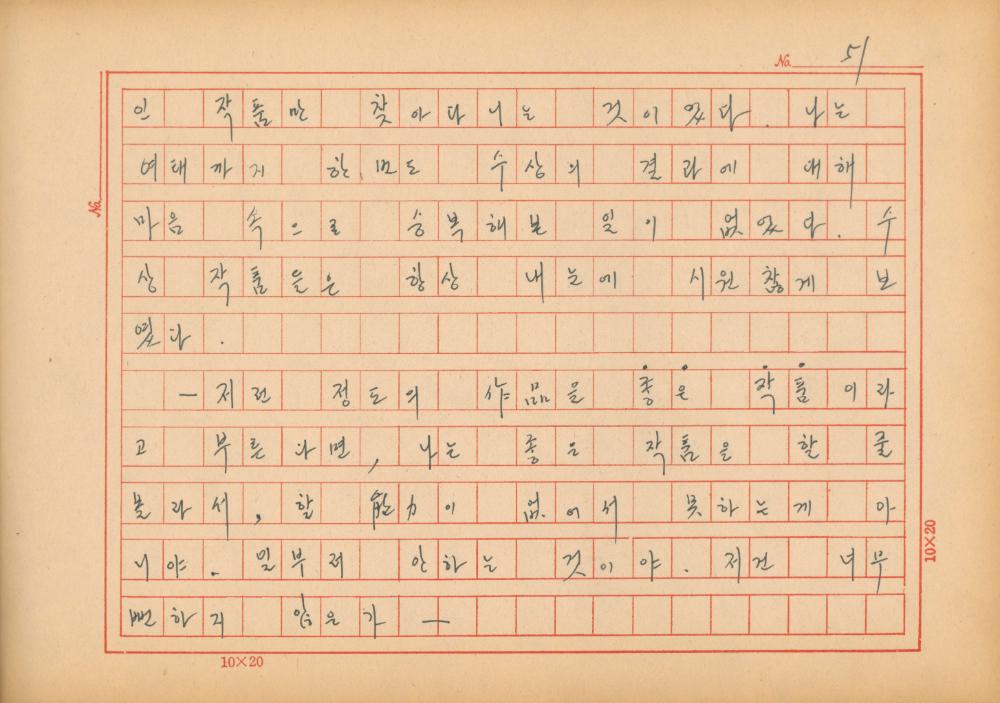 No. 51
인 작품만 찾아다니는 것이었다. 나는
여태까지 한번도 수상의 결과에 대해
마음 속으로 승복해본 일이 없었다. 수
상 작품들은 항상 내눈에 시원찮게 보
였다.
—저런 정도의 作品을 좋은 작품이라
고 부른다면, 나는 좋은 작품을 할 줄
몰라서, 할 能力이 없어서 못하는게 아
니야. 일부러 안하는 것이야. 저건 너무
뻔하지 않은가—
No.
10×20
10×20